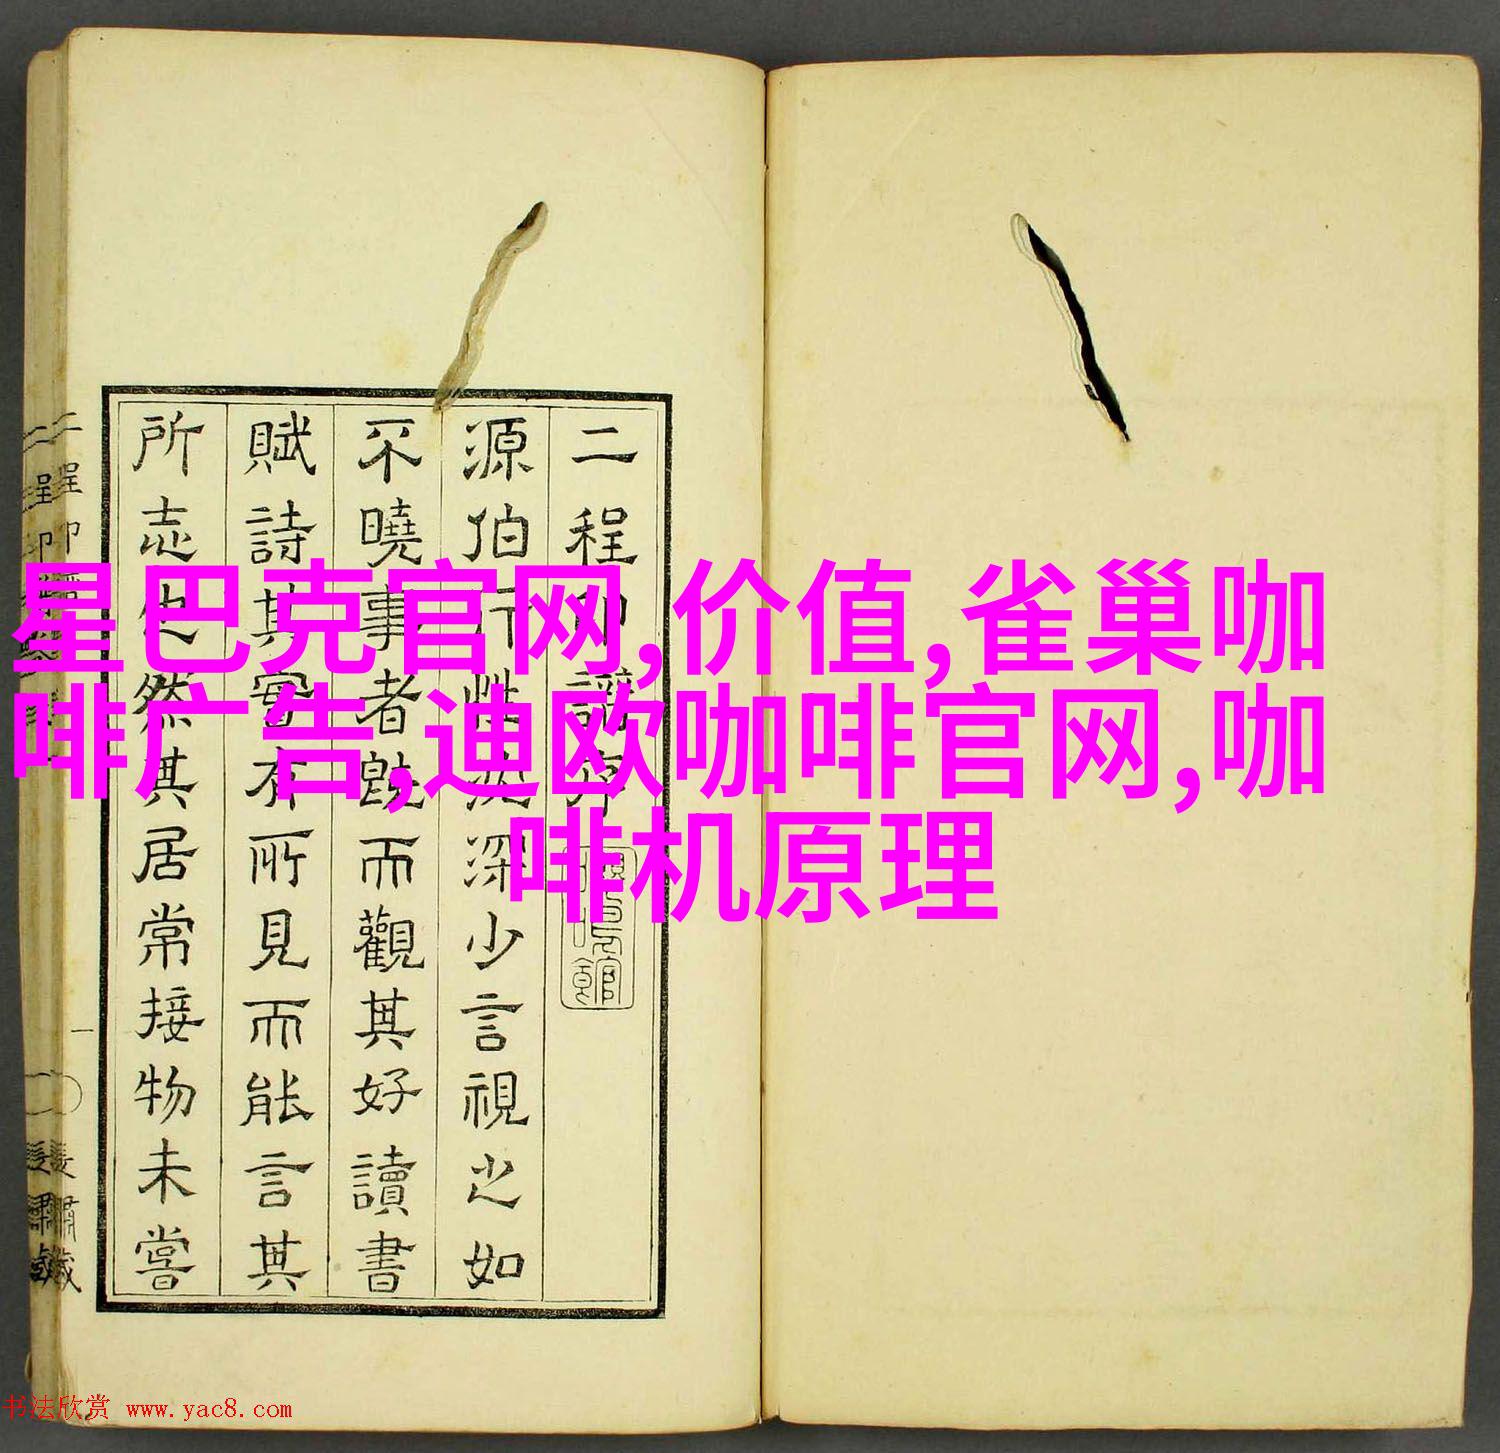 星巴克官网,价值,雀巢咖
啡广告,迪欧咖啡官网,咖
啡机原理
二程印譜序
源伯行性沈深少言視之如
不曉事者既而觀其好讀書
賦詩其實有所見而能言其
所志也然其居常接物未嘗
書法欣赏 www.yac8.com